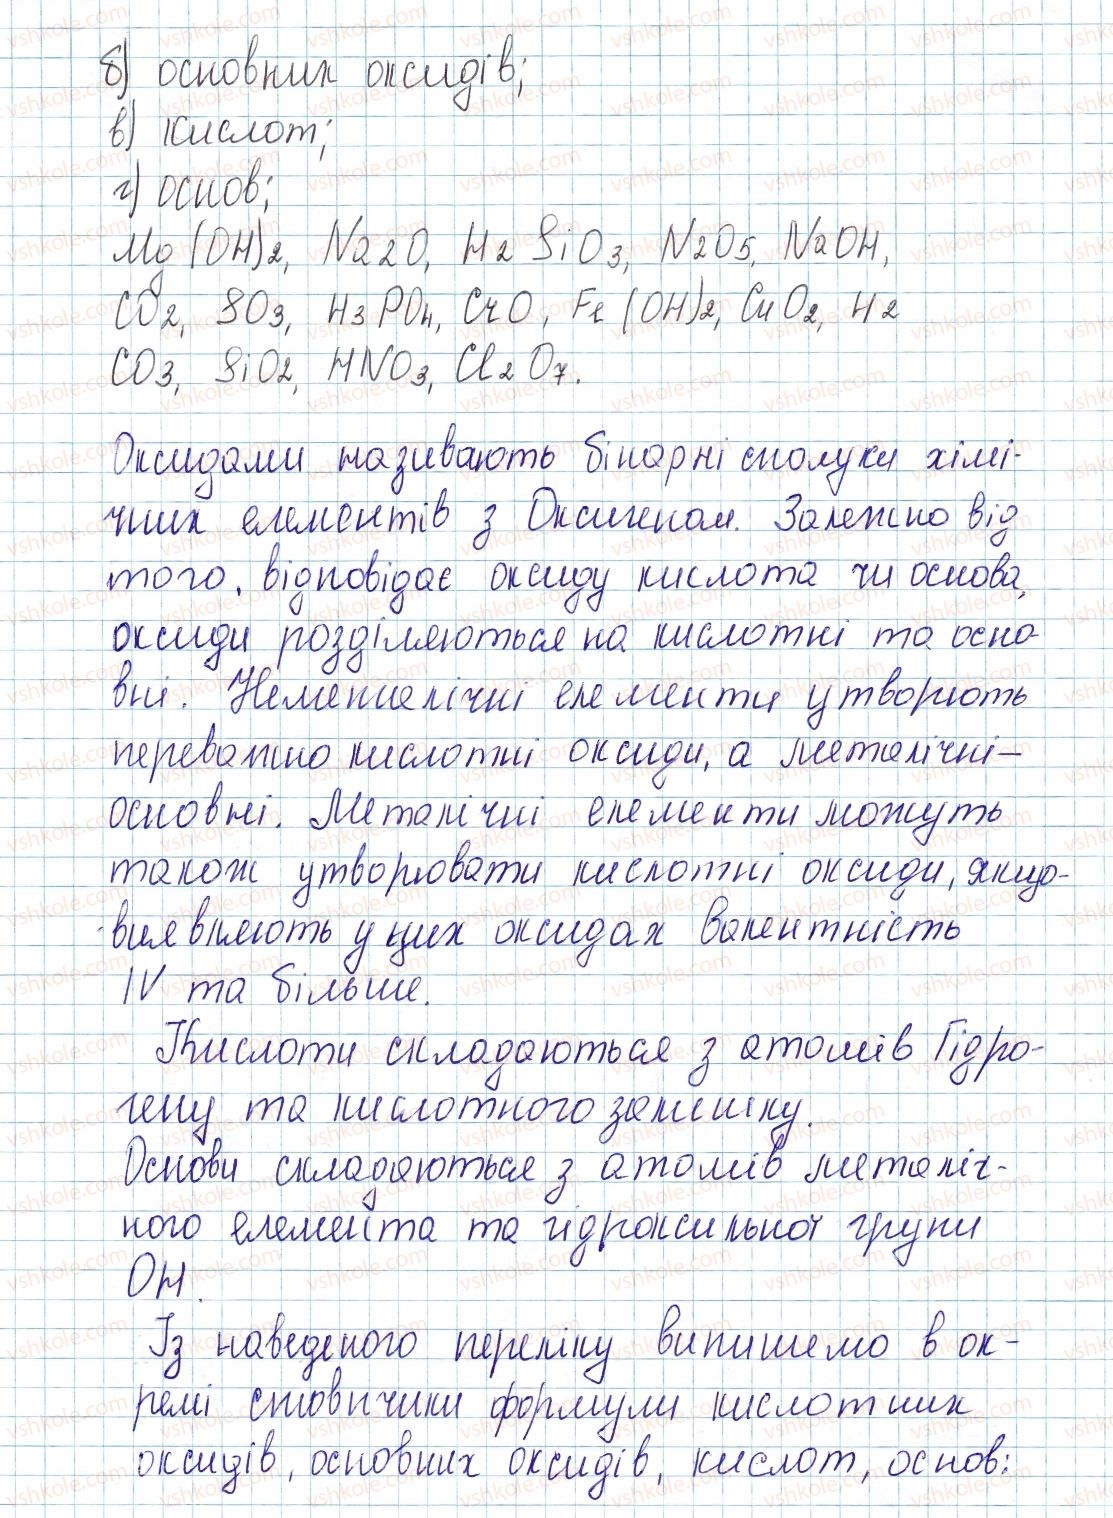 б) основних оксидів;
в) кислот;
г) основ;
Mg(OH)2, Na2O, H2SiO3, N2O5, NaOH,
CO2, SO3, H3PO4, CrO, Fe(OH)2, CuO2, H2
CO3, SiO2, HNO3, Cl2O7.
Оксидами називають бінарні сполуки хімі-
чних елементів з Оксигеном. Залежно від
того, відповідає оксиду кислота чи основа,
оксиди розділяються на кислотні та осно-
вні. Неметалічні елементи утворюють
переважно кислотні оксиди, а металічні –
основні. Металічні елементи можуть
також утворювати кислотні оксиди, якщо
виявляють у цих оксидах валентність
IV та більше.
Кислоти складаються з атомів Гідро-
гену та кислотного залишку.
Основи складаються з атомів металіч-
ного елемента та гідроксильної групи
OH.
Із наведеного переліку випишемо в ок-
ремі стовпчики формули кислотних
оксидів, основних оксидів, кислот, основ: